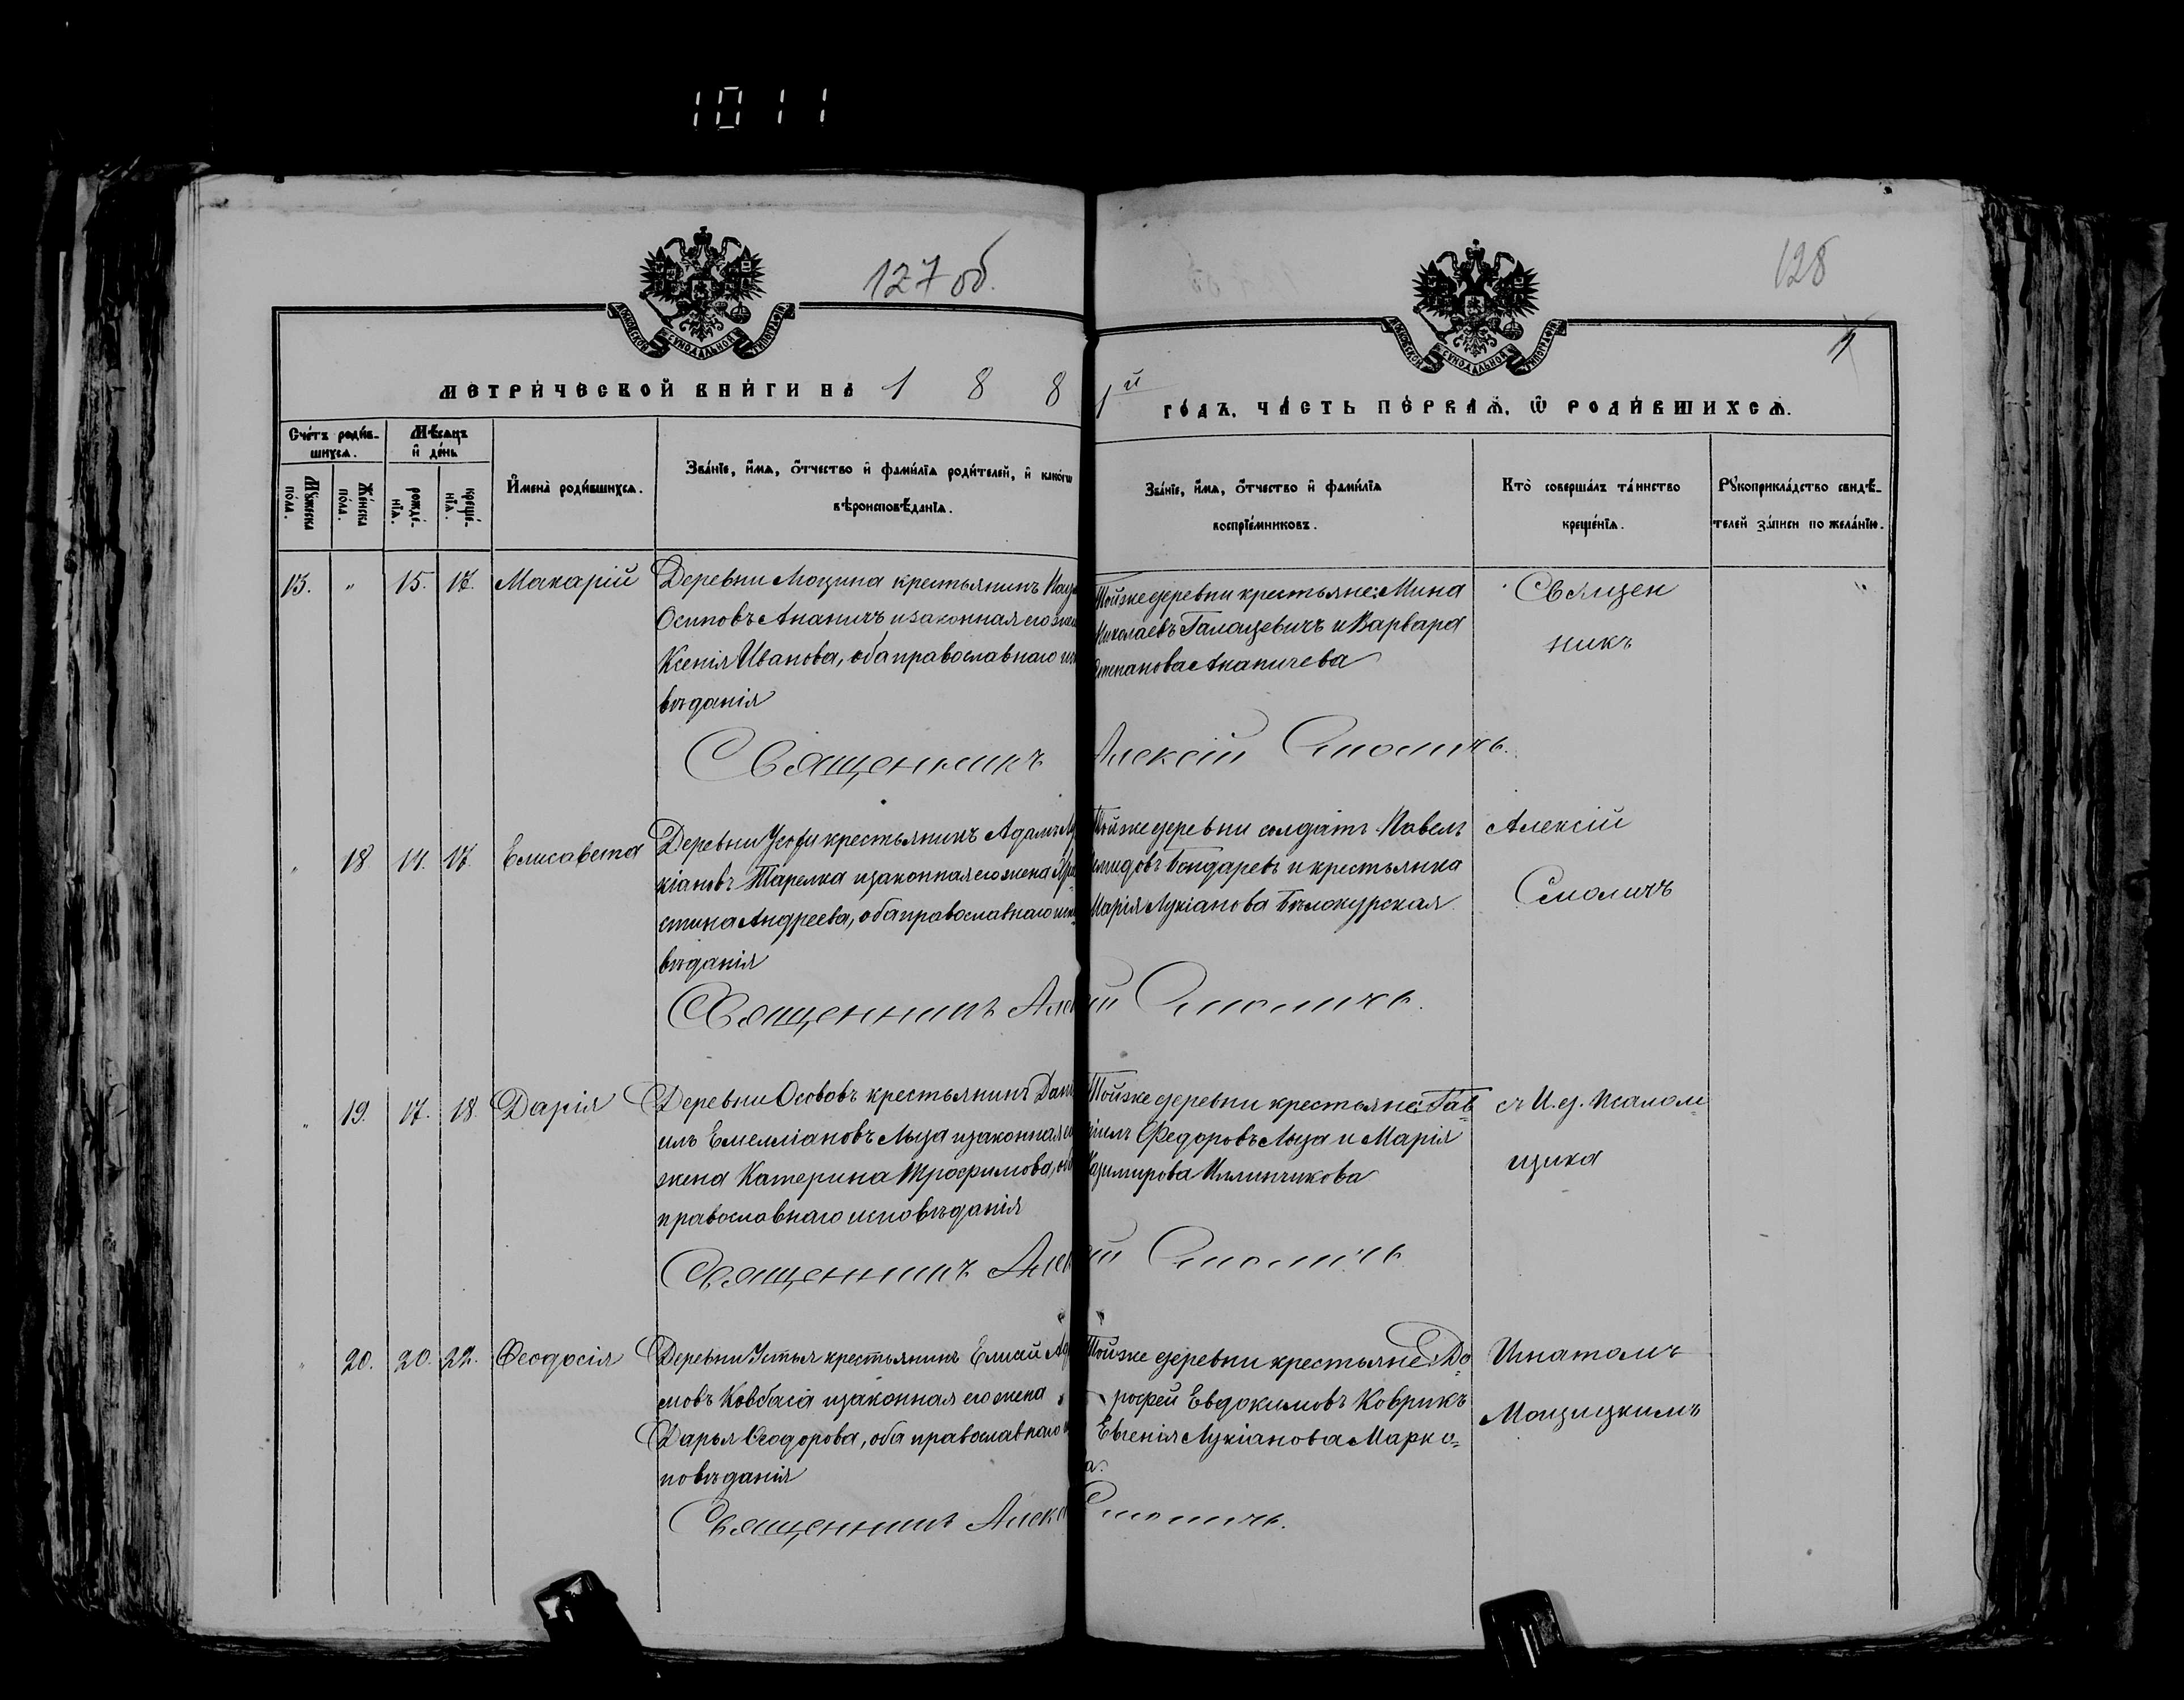 1011
127 об.
128
МОСКОВСКОЙ СѴНОДАЛЬНОЙ ТИПОГРАФІИ
МОСКОВСКОЙ СѴНОДАЛЬНОЙ ТИПОГРАФІИ
МЕТРИ́ЧЕСКОЙ КНИ́ГИ НА 1 8 8 1й ГО́ДЪ, ЧА́СТЬ ПЕ́РВАѦ, Ѡ҆ РОДИ́ВШИХСѦ.
Сче́тъ роди́в-
шихсѧ.
Мѣ́сѧцъ
и҆ де́нь
Мꙋ́жеска
по́ла.
Же́нска
по́ла.
рожде́-
нїѧ.
креще́-
нїѧ.
И҆мена̀ роди́вшихсѧ.
Зва́нїе, и҆́мѧ, ѻ҆́тчество и҆ фами́лїѧ роди́телей, и҆ како́гѡ
вѣроисповѣ́данїѧ.
Зва́нїе, и҆́мѧ, ѻ҆́тчество и҆ фами́лїѧ
воспрїе́мниковъ.
Кто̀ соверша́лъ та́инство
креще́нїѧ.
Рꙋкоприкла́дство свидѣ́-
телей за́писи по жела́нїю.
13. " 15. 17. Макарій
Деревни Мощина крестьянинъ
Осиповъ Ананичъ и законная его
Ксенія Иванова, оба православнаго
вѣданія
Тойже деревни крестьяне: Мина
Николаевъ Галацевичъ и Варвара
Степанова Ананичева
Священ
никъ
Священникъ Алексій Смоличъ.
" 18 14. 17. Елисавета
Деревни крестьянинъ Адамъ
кіановъ Тарелка и законная его жена
стина Андреева, оба православнаго
вѣданія
Тойже деревни солдатъ Павелъ
Бондаревъ и крестьянка
Марія Лукіанова Бѣлокурская
Алексій
Смоличъ
Священникъ Алексій Смоличъ.
" 19. 17. 18. Дарія
Деревни Осововъ крестьянинъ Дани
илъ Емеліановъ Лыза и законная
жена Катерина Трофимова, оба
православнаго исповѣданія
Тойже деревни крестьяне: Гав
ріилъ Федоровъ Лыза и Марія
Казимирова Иллинчикова
съ И. д. Псалом-
щика
Священникъ Алексій Смоличъ
" 20. 20. 22. Ѳеодосія
Деревни Устья крестьянинъ Елисей
мовъ Ковбаса и законная его жена
Дарья Ѳеодорова, оба православнаго
повѣданія
Тойже деревни крестьяне: До-
рофей Евдокимовъ Коврикъ
Евгенія Лукіанова Марко-
ва.
Игнатомъ
Мощицкимъ
Священникъ Алексій Смоличъ.